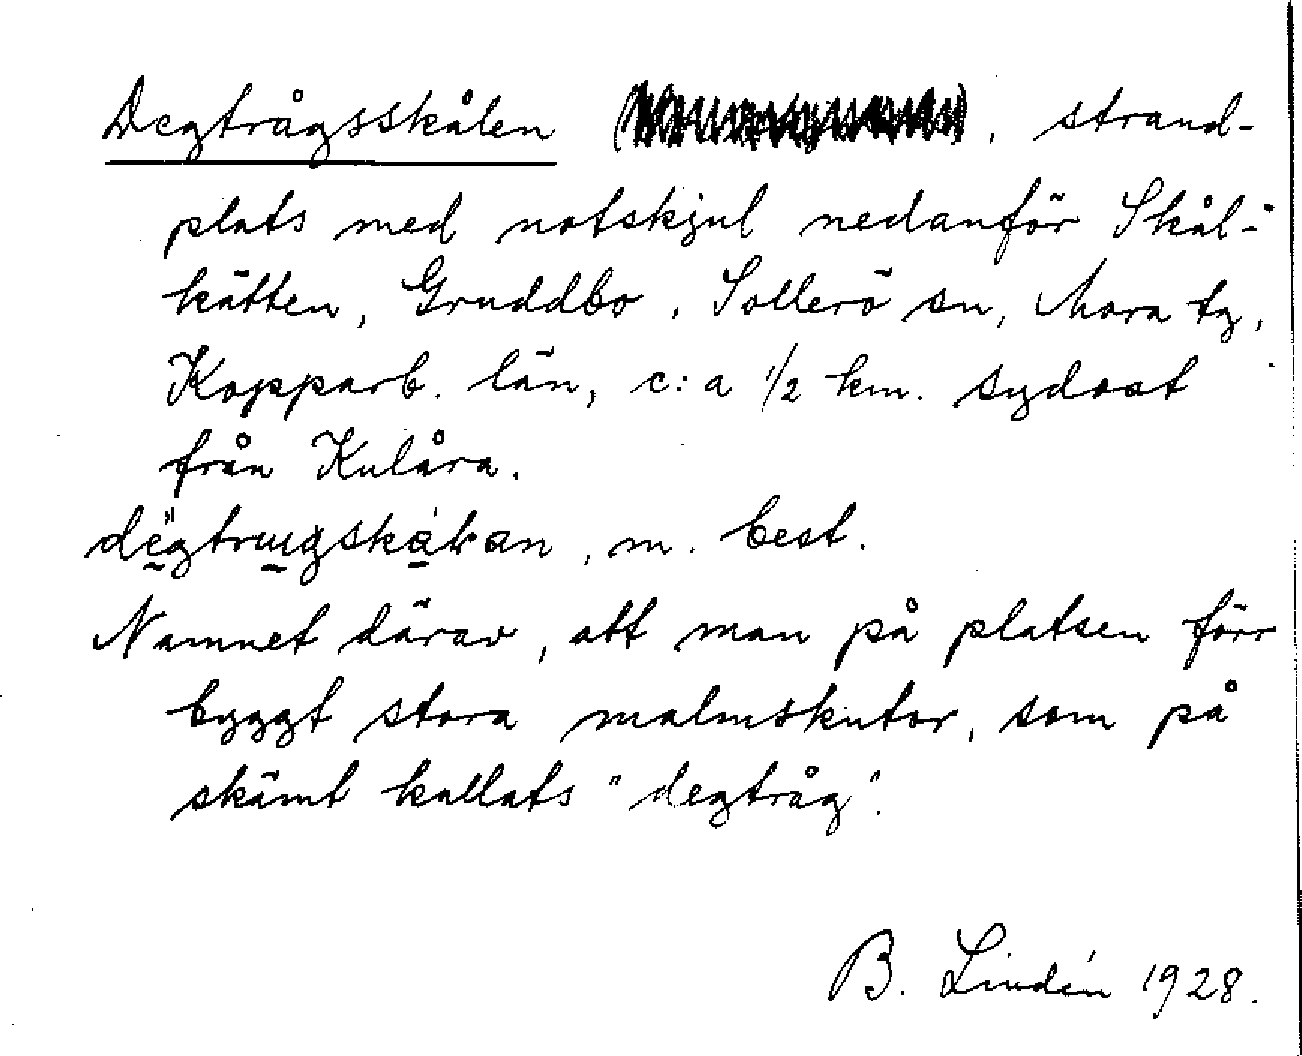 Degtrågsskålen , strand-
plats med notskjul nedanför Skål-
kätten, Gruddbo, Sollerö sn, Mora tg,
Kopparb. län, c:a 1/2 km. sydost
från Kulåra.
, m. best.
Namnet därav, att man på platsen förr
byggt stora malmskutor, som på
skämt kallats "degtråg".
B. Lindén 1928.